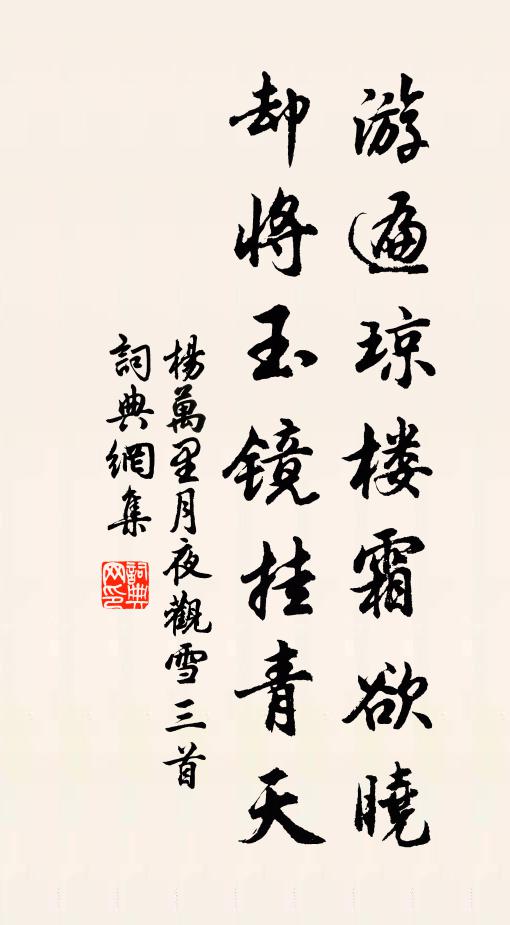 游遍琼楼霜欲曉
却將玉镜挂青天
楊萬里月夜觀雪三首
詞典網集
詞典网印